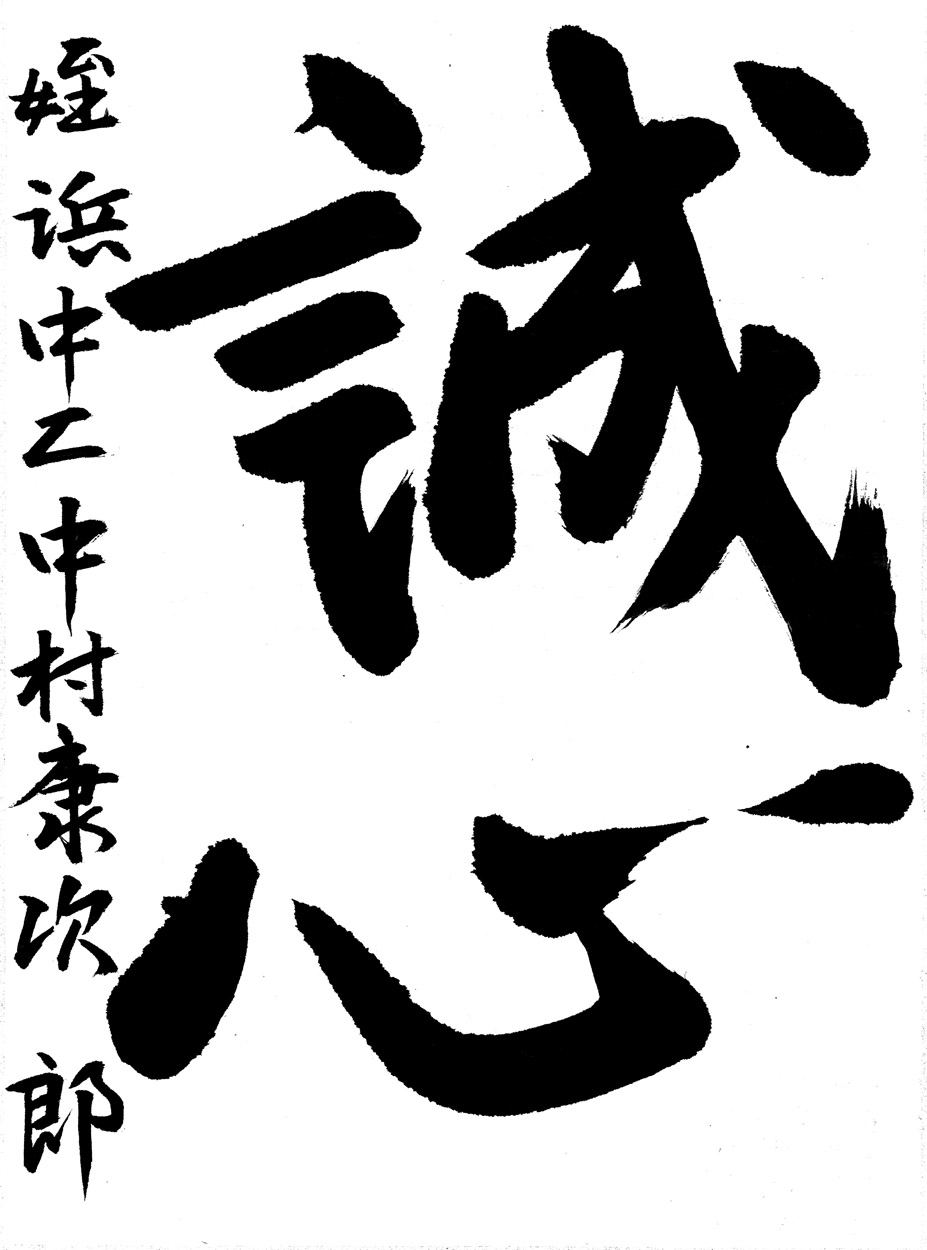 誠心
姪浜中二中村康次郎